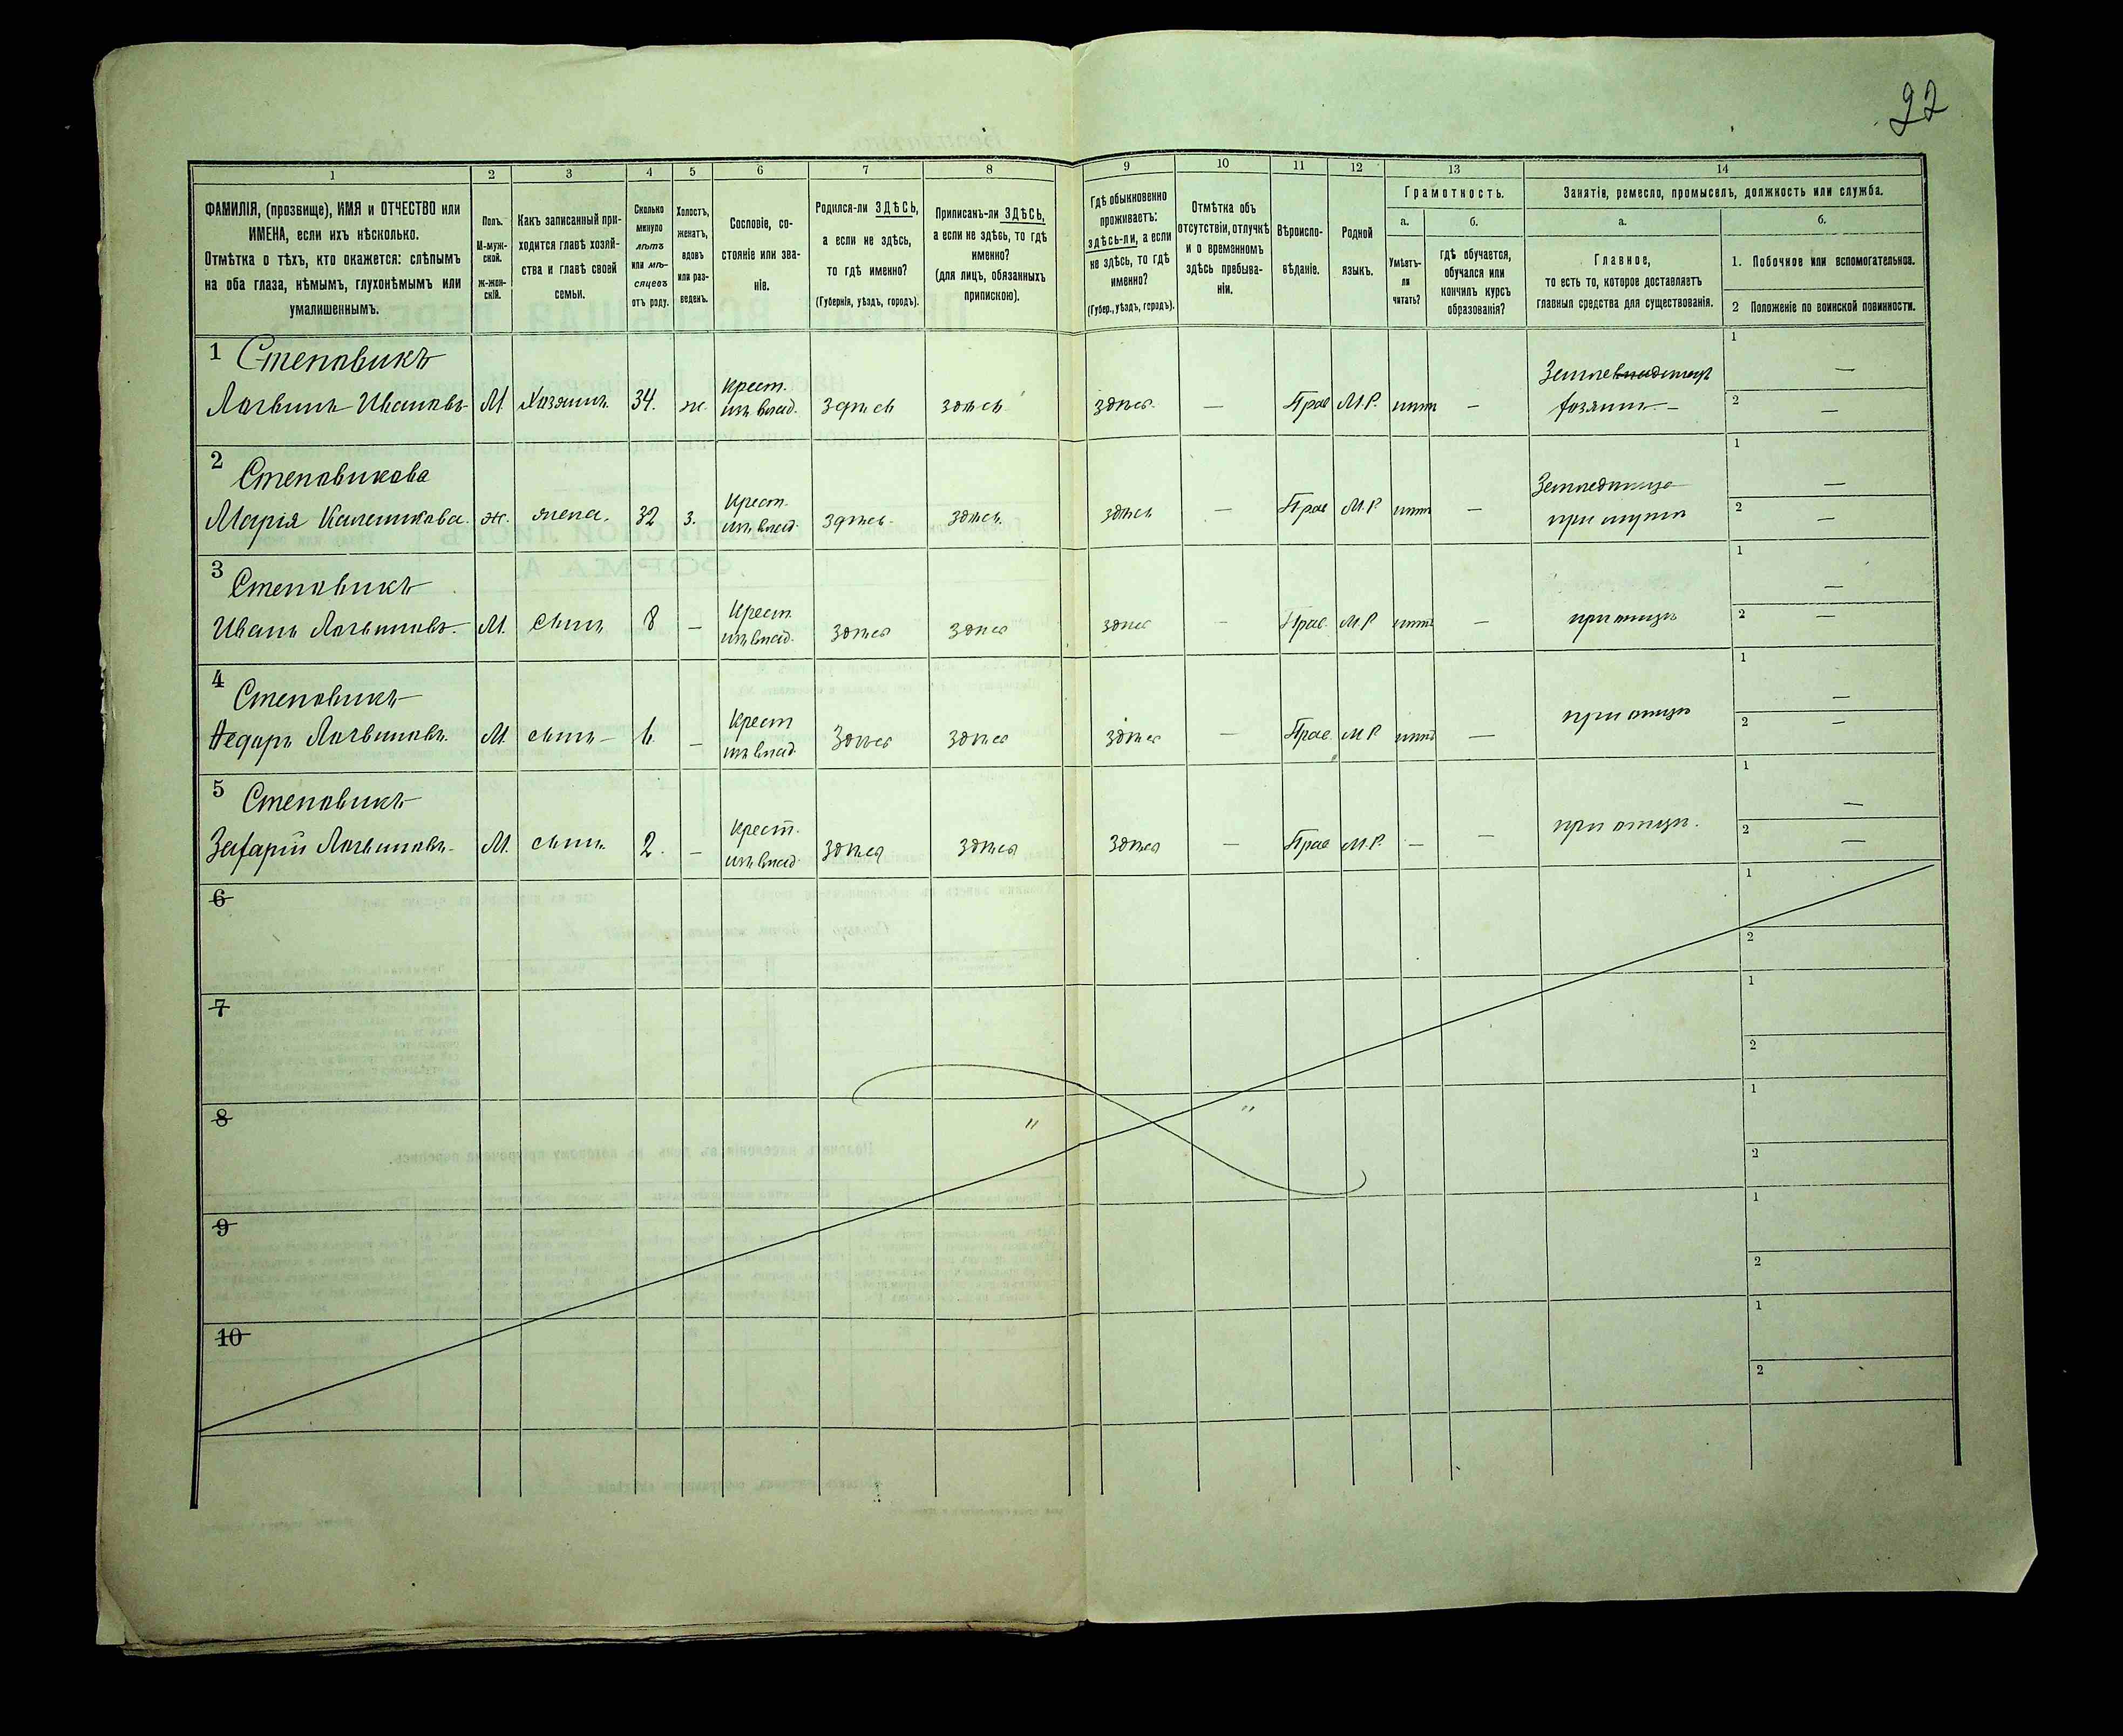 22
1 2 3 4 5 6 7 8 9 10 11 12 13 14
ФАМИЛІЯ, (прозвище), ИМЯ и ОТЧЕСТВО или
ИМЕНА, если ихъ нѣсколько.
Отмѣтка о тѣхъ, кто окажется: слѣпымъ
на оба глаза, нѣмымъ, глухонѣмымъ или
умалишеннымъ.
Полъ.
М-муж-
ской.
ж-жен-
скій.
Какъ записанный при-
ходится главѣ хозяй-
ства и главѣ своей
семьи.
Сколько
минуло
лѣтъ
или мѣ-
сяцевъ
отъ роду.
Холостъ,
женатъ,
вдовъ
или раз-
веденъ.
Сословіе, со-
стояніе или зва-
ніе.
Родился-ли ЗДѢСЬ,
а если не здѣсь,
то гдѣ именно?
(Губернія, уѣздъ, городъ).
Приписанъ-ли ЗДѢСЬ,
а если не здѣсь, то гдѣ
именно?
(для лицъ, обязанныхъ
припискою).
Гдѣ обыкновенно
проживаетъ:
здѣсь-ли, а если
не здѣсь, то гдѣ
именно?
(Губер., уѣздъ, городъ).
Отмѣтка объ
отсутствіи, отлучкѣ
и о временномъ
здѣсь пребыва-
ніи.
Вѣроиспо-
вѣданіе.
Родной
языкъ.
Грамотность.
а. б.
Умѣетъ-
ли
читать?
гдѣ обучается,
обучался или
кончилъ курсъ
образованія?
Занятія, ремесло, промыселъ, должность или служба.
а. б.
Главное,
то есть то, которое доставляетъ
главныя средства для существованія.
1. Побочное или вспомогательное.
2 Положеніе по воинской повинности.
1 Степовикъ
Логвинъ Ивановъ М. Хозяинъ. 34. ж. Крест. изъ влад. здѣсь здѣсь здѣсь. — Прав М.Р. нѣтъ — хозяинъ — 1 — 2 —
2 Степовикова
Марія Калешкова. ж. жена. 32 з. Крест. изъ влад. здѣсь. здѣсь. здѣсь — Прав М.Р нѣтъ — при мужѣ 1 — 2 —
3 Степовикъ
Иванъ Логвиновъ. М. сынъ 8 — Крест. изъ влад. здѣсь здѣсь здѣсь — Прав. М.Р нѣтъ — при отцѣ 1 — 2 —
4 Степовикъ
Ѳедоръ Логвиновъ. М. сынъ — 6 — Крест изъ влад. Здѣсь здѣсь здѣсь — Прав. М.Р нѣтъ — при отцѣ 1 — 2 —
5 Степовикъ
Захарій Логвиновъ. М. сынъ. 2. — Крест. изъ влад. здѣсь здѣсь здѣсь — Прав М.Р. — — при отцѣ. 1 — 2 —
6 1
2
7 1
2
8 " " 1
2
9 1
2
10 1
2